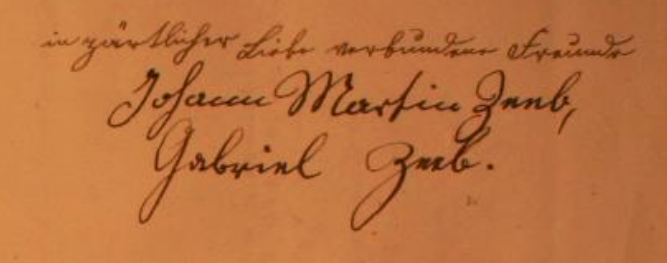 in zärtlicher Liebe verbundene Freunde
Johann Martin Zeeb,
Gabriel Zeeb.